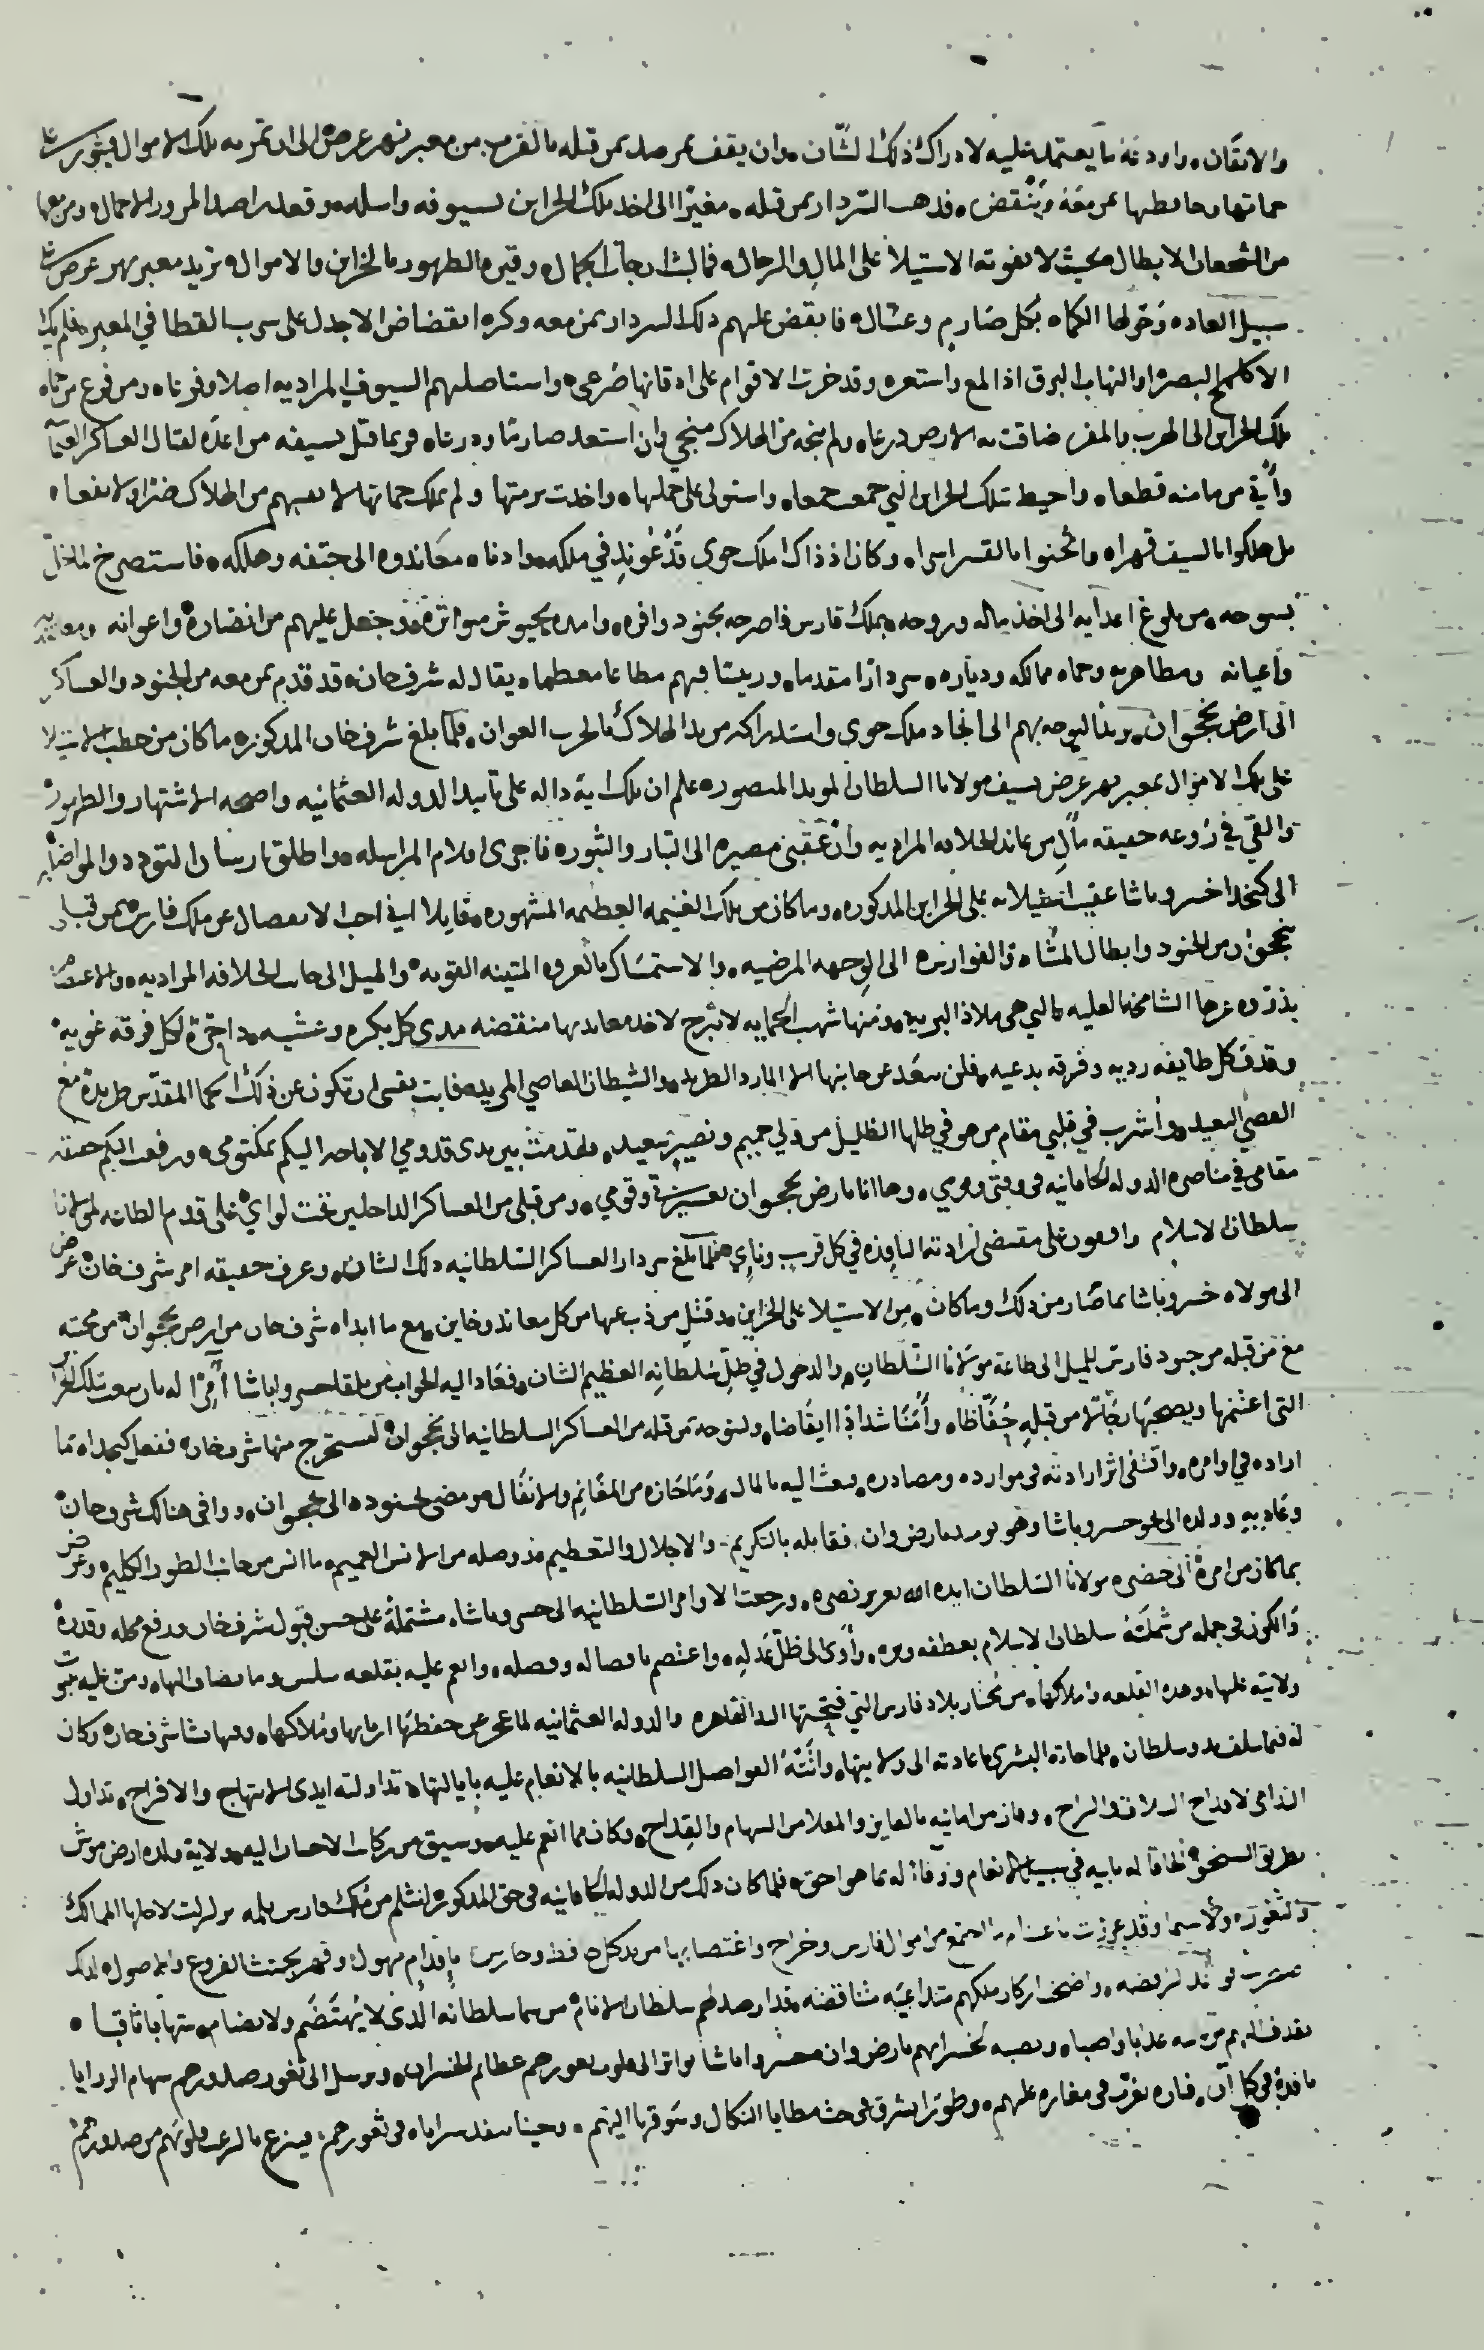 والاتقان، واردفه بما يعتمد عليه لادراك ذلك الشان، وان يقف بمرصد بمن قبله بالقرب من معبر نهر عرض الى ان تمر به تلك الاموال فيثور على
حماتها وحافظيها بمن معه وينقض، فذهب السردار بمن قبله، مغيرا الى اخذ تلك الخزاين بسيوفه واسله، وقعد مراصدا لمرور الاحمال، ومن معها
من الشجعان الابطال بحيث لا يفوته الاستيلا على المال والرجال، فما لبث ان جات الجمال وقيره الظهور بالخزاين والاموال، تريد معبر نهر عرض على
سبيل العاده وحولها الكماه بكل صارم وعسال، فانقض عليهم ذلك السردار بمن معه وكره انقضاض الاجدل على سرب القطا في المعبر، فلم يك
الا كلمح البصر، او التهاب البرق اذا لمع واستعر، وقد خرت الاقوام على اذقانها صرعى، واستاصلهم السيوف المراديه اصلا وفرعا، ومن فزع من حماه
تلك الخزاين الى الهرب والمفر، ضاقت به الارض ذرعا، ولم ينجه من الهلاك منجي وان استعد صارما ودرعا، وربما قتل بسيفه من اعده لقتال العساكر العثمانيه
وأتي من مامنه قطعا، واحيط بتلك الخزاين التي جمعت جمعا، واستولى على حملها، واخذت برمتها ولم يملك حماتها لانفسهم من الهلاك ضرا ولا نفعا،
بل هلكوا بالسيف قهرا، واثخنوا بالقسر اسرا، وكان اذ ذاك ملك خوي قد غوند في ملكه، وادناه معاندوه الى حتفه وهلكه، فاستصرخ لما حل
بسوحه، من بلوغ اعدايه الى اخذ ماله وروحه، بملك فارس فاصرخه بجنود وافره، وامده بجيوش متواتره، وجعل عليهم من انصاره واعوانه
واعيانه ومظاهريه وحماه ممالكه ودياره، سردارا مقدما، ورييسا فيهم مطاعا معظما، يقال له شرف خان، وقد قدم بمن معه من الجنود والعساكر
الى ارض نخجوان، يريد التوجه بهم الى انجاد ملك خوي واستدراكه من يد الهلاك بالحرب العوان، فلما بلغ شرف خان المذكور، ما كان من خطب الاستيلا
على تلك الاموال بمعبر نهر عرض بسيف مولانا السلطان المويد المنصور، علم ان تلك اية داله على تاييد الدوله العثمانيه واضحه الاشتهار والظهور،
والقي في روعه حقيقه مآل من عاند الخلافه المراديه وأن عقبى مصيره الى التبار والثبور، فاجرى اقلام المراسله، واطلق ارسان التودد والمواصله
الى كتخدا خسرو باشا عقيب استيلايه على الخزاين المذكوره، وما كان من تلك الغنيمه العظيمه المشهوره، قايلا اني احب الانفصال عن ملك فارس بمن قبلي
بنخجوان من الجنود وابطال المشاه والفوارس، الى الوجهه المرضيه، والاستمساك بالعروه المتينه القويه، والميل الى جانب الخلافه المراديه، والاعتصام
بذروه عزها الشامخه العليه، التي هي ملاذ البريه، ومنها شهب الحمايه لا تبرح لاخذ معاديها منقضه مدى كل بكره وعشيه، داحره لكل فرقه غويه،
وقذف كل طايفه رديه وفرقه بدعيه، فلن يبعد عن جانبها الا المارد الطريد، والشيطان العاصي المريد، فابت نفسي ان تكون عن ذلك الحما المقدس طريدة مع
العصي البعيد، وأشرب في قلبي مقام من هو في ظلها الظليل من ولي حميم ونصير سعيد، فقدمت بين يدي قدومي الاباحه اليكم بمكتومي، ورفعت اليكم حقيقه
مقامي في مناصره الدوله الخاقانيه في وقتي ويومي، وها انا بارض نخجوان بعشيرتي وقومي، ومن قبلي من العساكر الداخلين تحت لوائي على قدم الطاعه لمولانا
سلطان الاسلام واقفون على مقتضى ارادته النافذه في كل قريب ونائي، فلما بلغ سردار العساكر السلطانيه ذلك الشان، وعرف حقيقه امر شرف خان، عرض
الى مولاه خسرو باشا بما صار من ذلك وما كان، من الاستيلا على الخزاين، وقتل من ذب عنها من كل معاند وخاين، مع ما ابداه شرف خان من ارض نخجوان، من محبته
مع من قبله من جنود فارس للميل الى طاعة مولانا السلطان، والدخول في ظل سلطانه العظيم الشان، فعاد اليه الجواب من تلقا خسرو باشا آمرا له بان يبعث بتلك الخزاين
التي اغتنمها ويصحبها رجالا من قبله حفاظا، وأمنا شدادا ايقاضا، وليتوجه بمن قبله من العساكر السلطانيه الى نخجوان، ليستخرج منها شرف خان، ففعل كتخداه ما
اراده في اوامره، واقتفى اثر ارادته في موارده ومصادره، وبعث اليه بالمال، وما حازه من المغانم والانفال، ومضى بجنوده الى نخجوان، ووافى هنالك شرف خان
وعاد به وولده الى نحو خسرو باشا وهو يوميذ بارض وان، فقابله بالتكريم، والاجلال والتعظيم، ووصله من الانس العميم، ما انس من جانب الطور الكليم، وعرض
بما كان من امره الى حضره مولانا السلطان ايده الله بعزيز نصره، ورجعت الاوامر السلطانيه الى خسرو باشا، مشتملة على حسن قبول شرف خان ورفع محله وقدره
والكون في جمله من شملته سلطان الاسلام بعطفه وبره، وأوى الى ظل عدله، واعتصم بافضاله وفضله، وانعم عليه بقلعه سلس وما يضاف اليها، ومن عليه بثبوت
ولايته عليها، وهذه القلعه واملاكها، من خيار بلاد فارس التي فتحتها اليد القاهره والدوله العثمانيه لما عجز عن حفظها اربابها وملاكها، وبها نشا شرف خان، وكان
له فيما سلف يد وسلطان، فلما جاته البشرى باعادته الى ولايتها، واتته الفواضل السلطانيه بالانعام عليه بايالتها، تداولته ايدي الابتهاج والافراح، تداول
الندامى لاقداح السلاف والراح، وفاز من امانيه بالفايز والمعلا من السهام والقداح، وكان مما انعم عليه، وسيق من بركات الاحسان اليه، ولاية ولده ارض موش
بطريق السنجق، لحاقا له بابيه في سبيل الانعام وزفافا له بما هو احق، فلما كان ذلك من الدوله الخاقانيه في حق المذكور، انثلم من ملك فارس ثلمه زلزلت لاجلها الممالك
والثغور، ولا سيما وقد عززت باغتنام ما اجتمع من اموال فارس وخراج واغتصابها من يد كل حافظ وحارس، باقدام مهول، وقهر يجتث الفروع والاصول،
واضحت اركان ملكهم متداعيه متناقضه، مدا رصدهم سلطان الانام من سما سلطانه الذي لا يهتضم ولا يضام، منها شهابا ثاقبا،
يقذف اليهم عذابا واصبا، ونصبه لخسرانهم بارض وان خسرو باشا يواتر الى قلوب ثغورهم عظايم الخسران، ويرسل الى ثغور صدورهم سهام الرزايا
نافذة في كل آن، فتاره يغرب في مغاره عليهم، وطورا يشرق في حث مطايا النكال وسوقها اليهم، وحينا ينفذ سراياه في ثغورهم، فينزع بالرعب قلوبهم من صدورهم